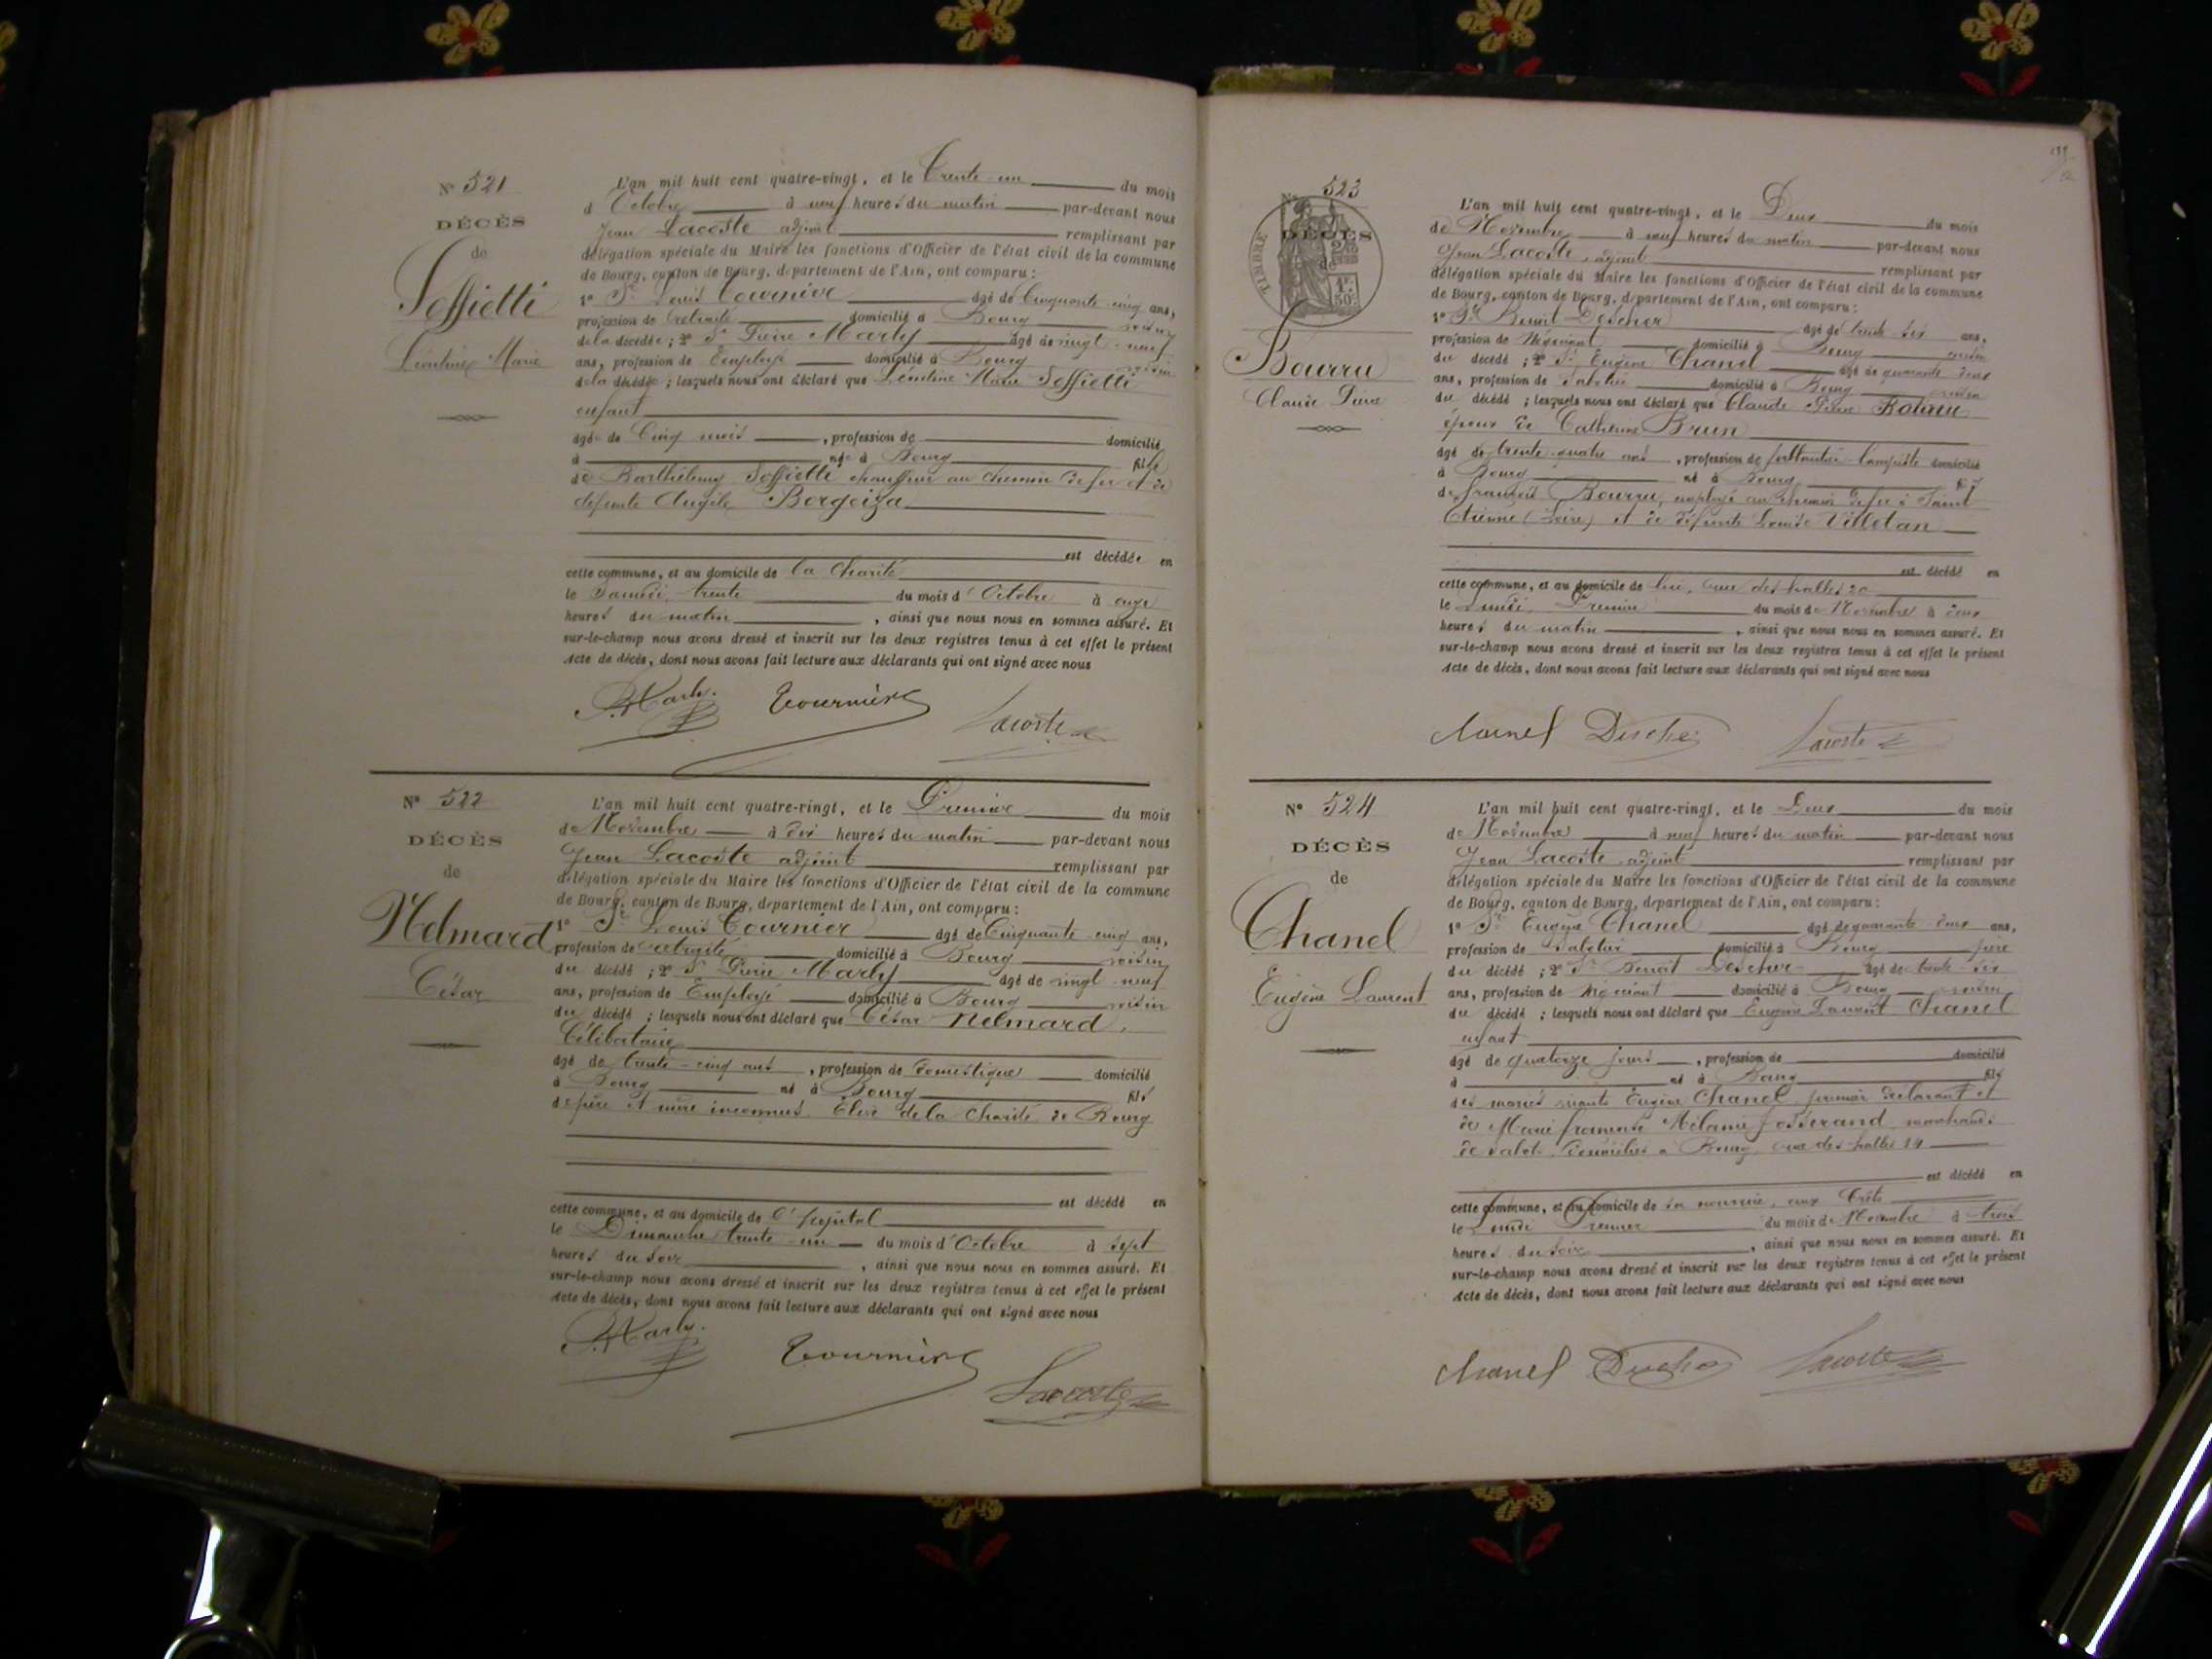 N° 521
DÉCÈS
de
Soffietti
Léontine Marie
L'an mil huit cent quatre-vingt, et le Trente-un du mois
d'Octobre à neuf heures du matin par-devant nous
Jean Lacoste adjoint remplissant par
délégation spéciale du Maire les fonctions d'Officier de l'état civil de la commune
de Bourg, canton de Bourg, département de l'Ain, ont comparu :
1° Sr Louis Tournier âgé de Cinquante-cinq ans,
profession de retraité domicilié à Bourg voisin
de la décédée ; 2° Sr Pierre Marly âgé de vingt-neuf
ans, profession de Employé domicilié à Bourg voisin
de la décédée ; lesquels nous ont déclaré que Léontine Marie Soffietti
enfant
âgée de Cinq mois , profession de domicilié
à née à Bourg fille
de Barthélemy Soffietti chauffeur au chemin de fer et de
défunte Angèle Borgeiza
est décédée en
cette commune, et au domicile de la Charité
le Samedi trente du mois d'Octobre à onze
heures du matin , ainsi que nous nous en sommes assuré. Et
sur-le-champ nous avons dressé et inscrit sur les deux registres tenus à cet effet le présent
Acte de décès, dont nous avons fait lecture aux déclarants qui ont signé avec nous
P. Marly. Tournier Lacoste
N° 522
DÉCÈS
de
Nelmard
César
L'an mil huit cent quatre-vingt, et le Premier du mois
de Novembre à dix heures du matin par-devant nous
Jean Lacoste adjoint remplissant par
délégation spéciale du Maire les fonctions d'Officier de l'état civil de la commune
de Bourg, canton de Bourg, département de l'Ain, ont comparu :
1° Sr Louis Tournier âgé de Cinquante-cinq ans,
profession de retraité domicilié à Bourg voisin
du décédé ; 2° Sr Pierre Marly âgé de vingt-neuf
ans, profession de Employé domicilié à Bourg voisin
du décédé ; lesquels nous ont déclaré que César Nelmard,
Célibataire
âgé de trente-cinq ans , profession de domestique domicilié
à Bourg né à Bourg fils
de père et mère inconnus. Elève de la Charité de Bourg
est décédé en
cette commune, et au domicile de l'hôpital
le Dimanche trente-un du mois d'Octobre à sept
heures du soir , ainsi que nous nous en sommes assuré. Et
sur-le-champ nous avons dressé et inscrit sur les deux registres tenus à cet effet le présent
Acte de décès, dont nous avons fait lecture aux déclarants qui ont signé avec nous
P. Marly. Tournier Lacoste
N° 523
DÉCÈS
de
TIMBRE
1F. 50C.
Bourru
Claude Pierre
L'an mil huit cent quatre-vingt, et le Deux du mois
de Novembre à neuf heures du matin par-devant nous
Jean Lacoste, adjoint remplissant par
délégation spéciale du Maire les fonctions d'Officier de l'état civil de la commune
de Bourg, canton de Bourg, département de l'Ain, ont comparu :
1° Sr Benoit Descher âgé de trente-six ans,
profession de Négociant domicilié à Bourg voisin
du décédé ; 2° Sr Eugène Chanel âgé de quarante-deux
ans, profession de Sabotier domicilié à Bourg voisin
du décédé ; lesquels nous ont déclaré que Claude Pierre Bourru
époux de Catherine Brun
âgé de trente-quatre ans , profession de ferblantier-lampiste domicilié
à Bourg né à Bourg fils
de François Bourru, employé au chemin de fer à Saint
Etienne (Loire) et de défunte Louise Villetan
est décédé en
cette commune, et au domicile de lui, rue des halles 20
le Lundi Premier du mois de Novembre à deux
heures du matin , ainsi que nous nous en sommes assuré. Et
sur-le-champ nous avons dressé et inscrit sur les deux registres tenus à cet effet le présent
Acte de décès, dont nous avons fait lecture aux déclarants qui ont signé avec nous
Chanel Descher Lacoste
N° 524
DÉCÈS
de
Chanel
Eugène Laurent
L'an mil huit cent quatre-vingt, et le Deux du mois
de Novembre à neuf heures du matin par-devant nous
Jean Lacoste adjoint remplissant par
délégation spéciale du Maire les fonctions d'Officier de l'état civil de la commune
de Bourg, canton de Bourg, département de l'Ain, ont comparu :
1° Sr Eugène Chanel âgé de quarante-deux ans,
profession de Sabotier domicilié à Bourg père
du décédé ; 2° Sr Benoit Descher âgé de trente-six
ans, profession de Négociant domicilié à Bourg voisin
du décédé ; lesquels nous ont déclaré que Eugène Laurent Chanel
enfant
âgé de quatorze jours , profession de domicilié
à né à Bourg fils
des mariés vivants Eugène Chanel premier déclarant et
de Marie Françoise Mélanie Josserand marchands
de sabots, domiciliés à Bourg, rue des halles 14
est décédé en
cette commune, et au domicile de sa nourrice, aux
le Lundi Premier du mois de Novembre à trois
heures du soir , ainsi que nous nous en sommes assuré. Et
sur-le-champ nous avons dressé et inscrit sur les deux registres tenus à cet effet le présent
Acte de décès, dont nous avons fait lecture aux déclarants qui ont signé avec nous
Chanel Descher Lacoste